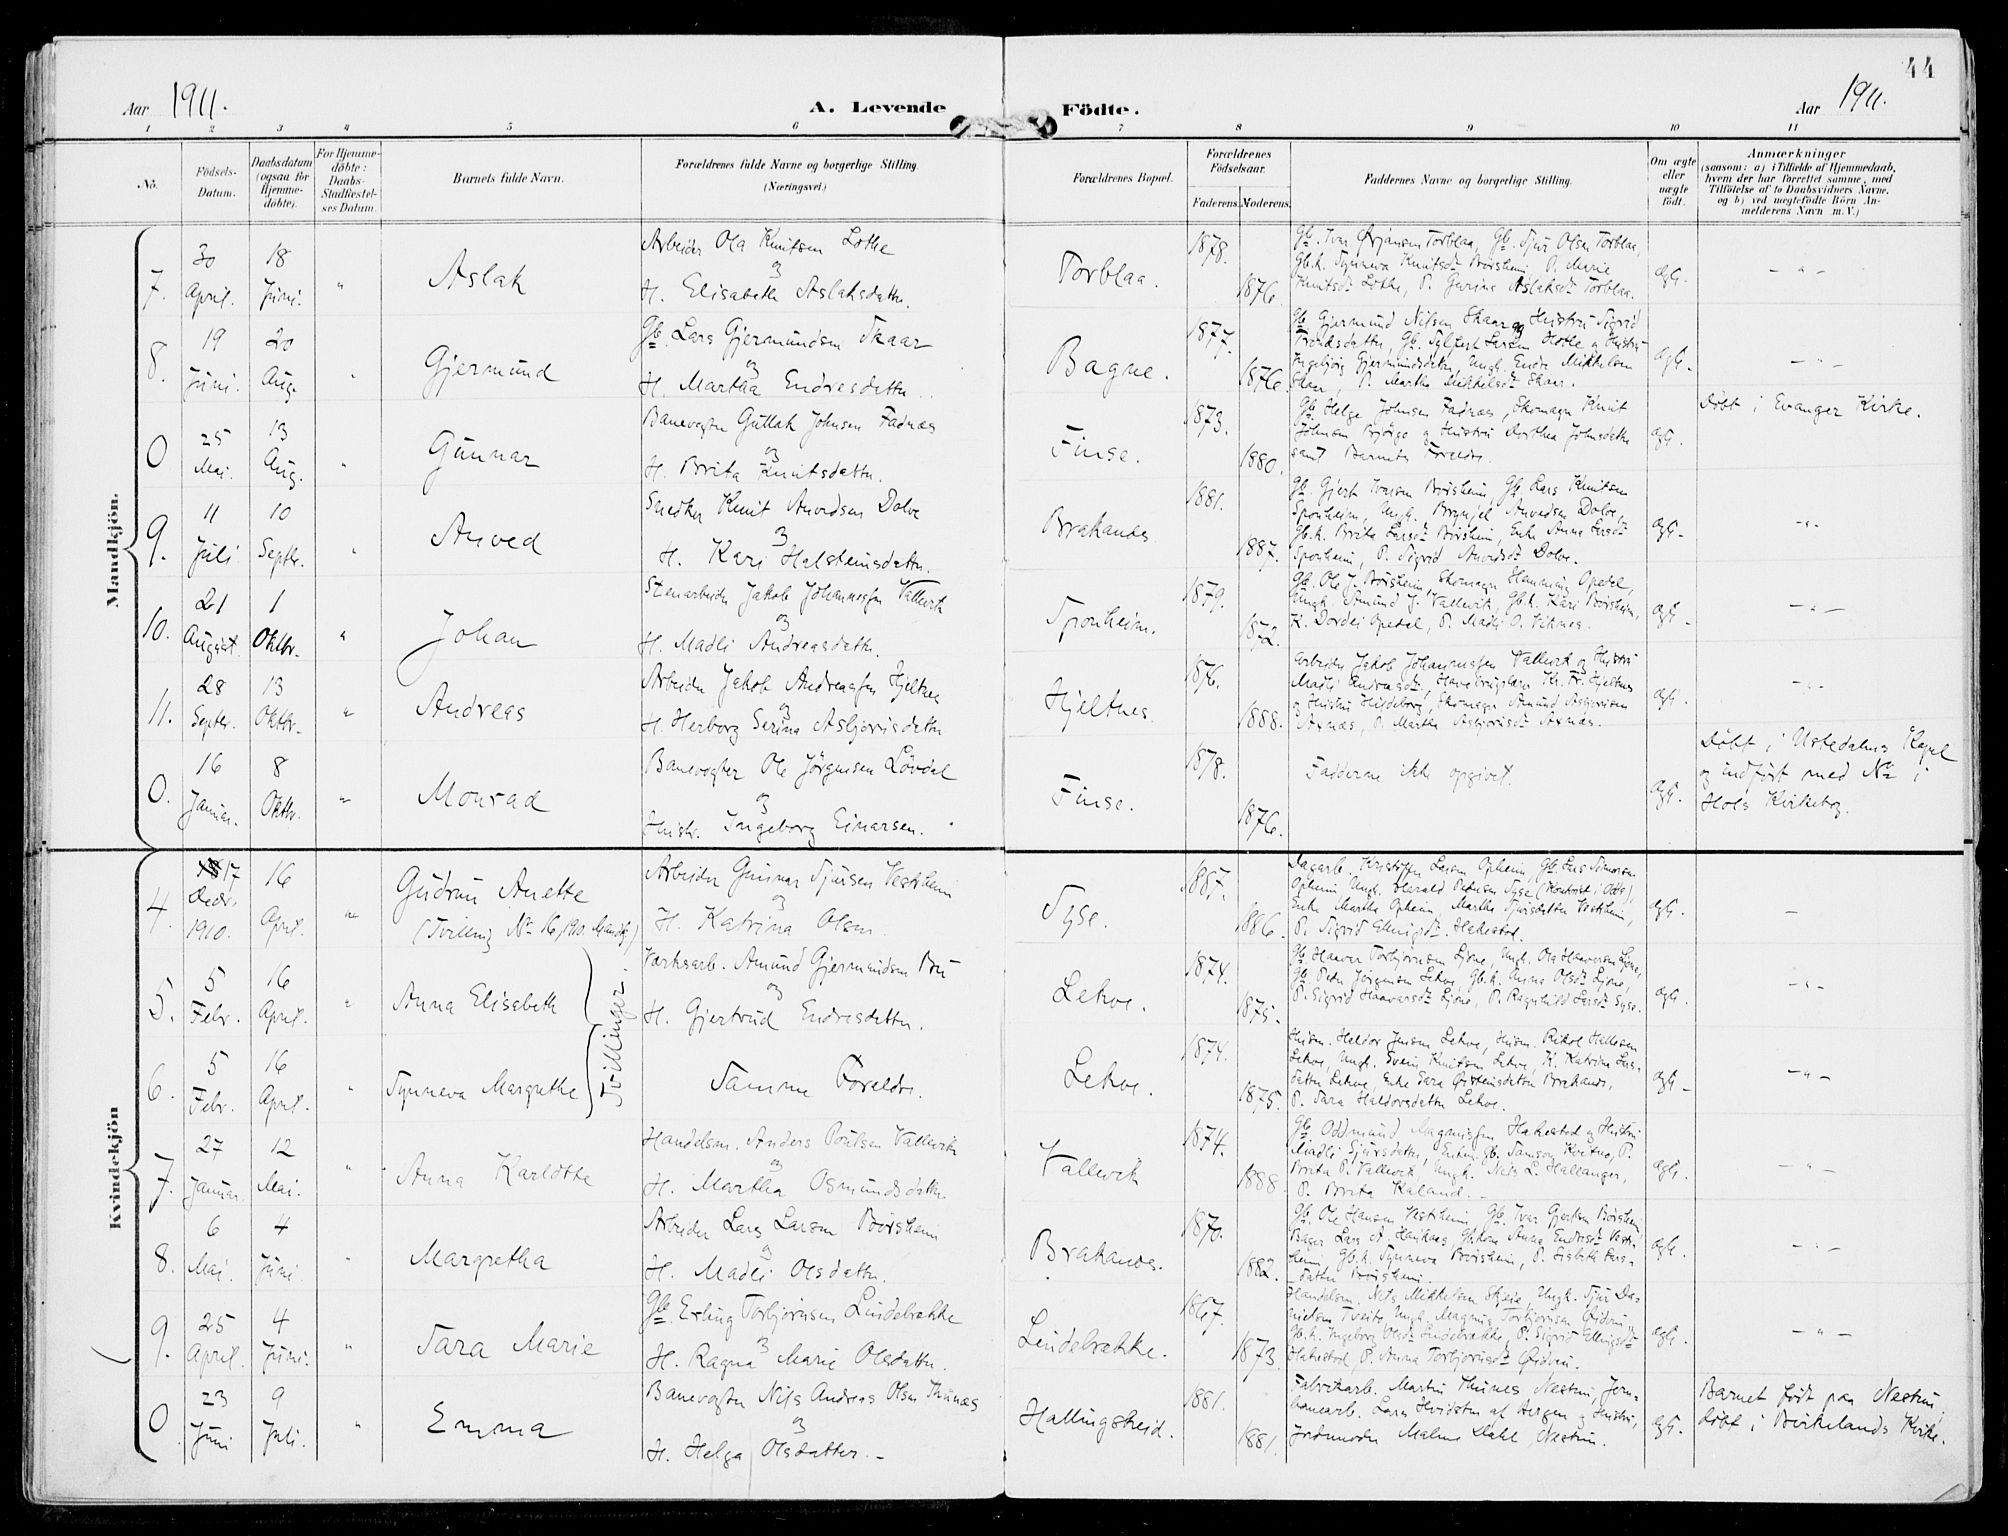 44
Aar 1911.
A. Levende Födte.
Aar 1911.
1 2 3 4 5 6 7 8 9 10 11
No.
Födsels-Datum.
Daabsdatum (ogsaa for Hjemmedöbte).
For Hjemmedöbte: Daabs-Stadfæstelses Datum.
Barnets fulde Navn.
Forældrenes fulde Navne og borgerlige Stilling.
(Næringsvei.)
Forældrenes Bopæl.
Forældrenes Födselsaar.
Faderens. Moderens.
Faddernes Navne og borgerlige Stilling.
Om ægte eller uægte födt.
Anmærkninger
(saasom: a) i Tilfælde af Hjemmedaab, hvem der har forrettet samme, med Tilföielse af to Daabsvidners Navne, og b) ved uægtefödte Börn Anmelderens Navn m. V.)
Mandkjön.
7. 30 April. 18 Juni. " Aslak
Arbeider Ola Knutsen Lothe
og
H. Elisabeth Aslaksdatter.
Torblaa. 1878. 1876.
Gb. Ivar Ørjansen Torblaa, Gb. Sjur Olsen Torblaa,
Gb.k. Synneva Knutsdr Børsheim, P. Marie
Knutsdr Lothe, P. Gurina Aslaksdr Torblaa.
ægt. - " -
8. 19 Juni. 20 Aug. " Gjermund
Gb. Lars Gjermundsen Skaar
og
H. Martha Endresdatter.
Bagne. 1877. 1876.
Gb. Gjermund Nilsen Skaar og Hustru Sigrid
Ingebjörg Gjermundsdatter, Ungk. Endre Mikkelsen
Skaar, P. Martha Mikkelsdr Skaar.
ægt. - " -
0 25 Mai. 13 Aug. " Gunnar
Banevogter Guttak Johnsen Fadnæs
og
H. Brita Knutsdatter.
Finse. 1873. 1880.
Gb. Helge Johnsen Fadnæs, Skomager Knut
Johnsen Bjørgo og Hustru Dorthea Johnsdatter
samt Barnets Foreldre.
ægt.
Døbt i Evanger Kirke.
9. 11 Juli 10 Septbr. " Anved
Snedker Knut Anvedsen Dolve
og
H. Kari Halsteinsdatter.
Brakanes 1881. 1887.
Gb. Gjert Ivarsen Børsheim, Gb. Lars Knutsen
Sponheim, Ungk. Brynjel Anvedsen Dolve,
Gb.k. Brita Larsdr Børsheim, Enke Anna Larsdr
Sponheim, P. Sigrid Anvedsdr Dolve.
ægt. - " -
10. 21 August 1 Oktbr. " Johan
Stenarbeider Jakob Johannessen Vallevik
og
H. Madli Andreasdatter.
Sponheim. 1879. 1872.
Gb. Ole J. Børsheim, Skomager Henning Opedal,
Ungk. Amund J. Vallevik, Gb.k. Kari Børsheim,
K. Dordei Opedal, P. Madli O. Viknes.
ægt. - " -
11. 28 Septbr. 13 Oktbr. " Andreas
Arbeider Jakob Andreassen Hjeltnes
og
H. Herborg Serina Asbjørnsdatter
Hjeltnes. 1876. 1888.
Arbeider Jakob Johannessen Vallevik og Hustru
Madli Andreasdr, Havebrugslærer Kr. Fr. Hjeltnes
og Hustru Hildeborg, Skomager Amund Asbjørnsen
Axnæs, P. Martha Asbjørnsdr Axnæs.
ægt. - " -
0. 16 Januar. 8 Oktbr. " Monrad
Banevogter Ole Jörgensen Lövdal
og
Hustr. Ingeborg Einarsen.
Finse. 1878. 1876.
Fadderne ikke opgivet.
ægt.
Døbt i Ustedalens Kapel
og indført med No i
Hols Kirkebog.
Kvindekjön
4. 17 Decbr. 1910. 16 April. " Gudrun Anette
(Tvilling No 16, 1910. Mandkj)
Arbeider Gunnar Sjursen Vestrheim
og
H. Katrina Olsen.
Syse. 1887. 1886.
Dagarb. Kristoffer Larsen Opheim, Gb. Lars Simonsen
Opheim, Ungk. Harald Pedersen Syse (Kontorist i Odda),
Enke Martha Opheim, Martha Sjursdatter Vestrheim,
P. Sigrid Ellingsdr. Hakestad.
ægt. -
5. 5 Febr. 16 April. " Anna Elisabeth
Tvillinger.
Værksarb. Amund Gjermundsen Bru
og
H. Gjertrud Endresdatter.
Lekve. 1874. 1875.
Gb. Haaver Torbjörnsen Ljöne, Ungk. Ola Haaversen Ljöne,
Gb. Peder Jörgensen Lekve, Gb.k. Anna Olsdr Ljöne,
P. Sigrid Haaversdr Ljöne, P. Ragnhild Larsdr Syse.
ægt. - " -
6. 5 Febr. 16 April. " Synneva Margrethe
Samme Foreldre.
Lekve. 1874. 1875.
Husm. Haldor Jensen Lekve, Husm. Rikol Hallesen
Lekve, Ungk. Svein Knutsen Lekve, K. Katrina Lars-
datter Lekve, Enke Sara Østensdatter Brakanes,
P. Sara Haldorsdatter Lekve.
ægt. - " -
7. 27 Januar. 12 Mai. " Anna Karlotta
Handelsm. Anders Poulsen Vallevik
og
H. Martha Osmundsdatter
Vallevik 1874. 1888.
Gb. Oddmund Magnussen Hakestad og Hustru
Madli Sjursdatter, Enkm. Gb. Samson Kvitno, P.
Brita P. Vallevik, Ungk. Nils L. Hallanger,
P. Brita Kaland.
ægt. - " -
8. 6 Mai. 4 Juni. " Margretha
Arbeider Lars Larsen Børsheim
og
H. Madli Olsdatter.
Brakanes. 1870. 1882.
Gb. Ole Hansen Vestrheim, Gb. Ivar Gjertsen Børsheim,
Bager Lars A. Haukaas, Gb.kone Anna Endresdr Vestr-
heim, Gb.k. Synneva Børsheim, P. Lisbeth Lars-
datter Børsheim.
ægt. - " -
9. 25 April. 4 Juni. " Sara Marie
Gb. Erling Torbjørnsen Lindebrække
og
H. Ragna Marie Olsdatter.
Lindebrække. 1867. 1873.
Handelsm. Nils Mikkelsen Skeie, Ungk. Sjur Da-
nielsen Tveito, Ungk. Magnus Torbjörnsen Øidvin,
Gb.k. Ingeborg Olsdr Lindebrække, P. Sigrid Ellingsdr
Hakestad, P. Anna Torbjörnsdr Øidvin.
ægt. - " -
0. 23 Juni 9 Juli. " Emma
Banevogter Nils Andreas Olsen Thunæs
og
H. Helga Olsdatter.
Hallingskeid. 1881. 1881.
Fabrikarb. Martin Thunes Nestun, Jern-
banearb. Lars Hvidsten af Bergen og Hustru,
Jordmoder Malene Dahl Nestun.
ægt.
Barnet født paa Nestun,
døbt i Birkelands Kirke.